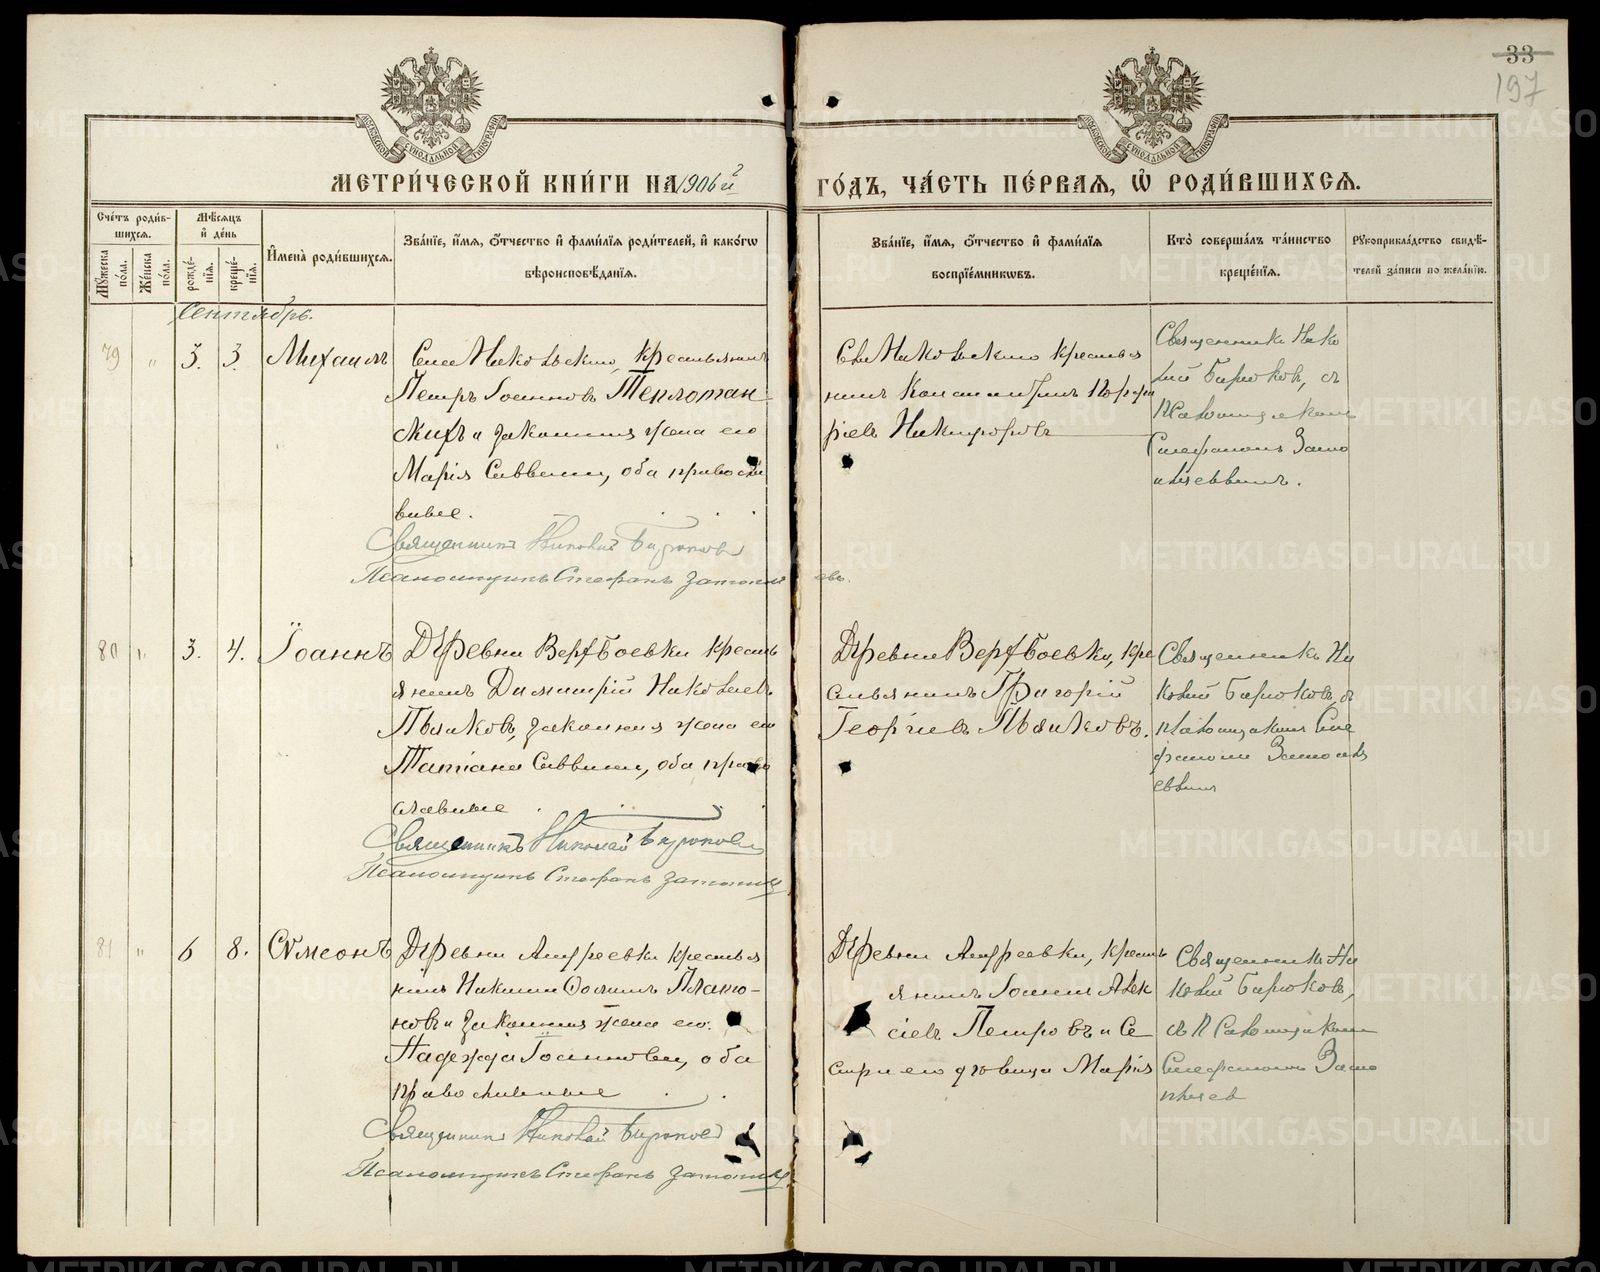 33
197
МОСКОВСКОЙ СУНОДАЛЬНОЙ ТИПОГРАФІИ
МОСКОВСКОЙ СУНОДАЛЬНОЙ ТИПОГРАФІИ
МЕТРИ́ЧЕСКОЙ КНИ́ГИ НА 1906й
ГО́ДЪ, ЧА́СТЬ ПЕ́РВАѦ, Ѿ РОДИ́ВШИХСѦ.
Сче́тъ роди́в-
шихсѧ.
Мꙋ́жеска по́ла.
Же́нска по́ла.
Мѣ́сѧцъ
и҆ де́нь
рожде́-
нїѧ.
креще́-
нїѧ.
И҆мена̀ роди́вшихсѧ.
Зва́нїе, и҆́мѧ, ѻ҆́тчество и҆ фами́лїѧ роди́телей, и҆ како́гѡ
вѣроисповѣ́данїѧ.
Зва́нїе, и҆́мѧ, ѻ҆́тчество и҆ фами́лїѧ
воспрїе́мникѡвъ.
Кто̀ соверша́лъ та́инство
креще́нїѧ.
Рꙋкоприкла́дство свидѣ́-
телей за́писи по жела́нїю.
Сентябрь.
79
"
3.
3.
Михаилъ
Села Никольскаго, крестьянинъ
Петръ Іоанновъ
и законная жена его
Марія Саввина, оба правосла
вные.
Священникъ Николай Бирюковъ
Псаломщикъ Стефанъ
Села Никольскаго крестья
нинъ Константинъ Порфи
ріевъ Никифоровъ
Священникъ Нико
лай Бирюковъ, съ
псаломщикомъ
Стефаномъ
80
"
3.
4.
Іоаннъ
Деревни Верх Боевки кресть
янинъ Димитрій Николаевъ
Пьянковъ, законная жена его
Татіана Саввина, оба право
славные
Священникъ Николай Бирюковъ
Псаломщикъ Стефанъ
Деревни Верх Боевки, кре
стьянинъ Григорій
Георгіевъ Пьянковъ.
Священникъ Ни
колай Бирюковъ, съ
псаломщикомъ Сте
фаномъ
81
"
6
8.
Сѵмеонъ
Деревни Андреевки крестья
нинъ Никита Ѳоминъ Плато-
новъ и законная жена его
Надежда Іоаннова, оба
православные
Священникъ Николай Бирюковъ
Псаломщикъ Стефанъ
Деревни Андреевки, кресть
янинъ Іоаннъ Алек
сіевъ Петровъ и се
стра его дѣвица Марія
Священникъ Ни
колай Бирюковъ,
съ псаломщикомъ
Стефаномъ
METRIKI.GASO-URAL.RU